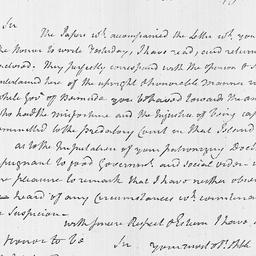 Sir
The Papers wh. accompanied the Letter wh. you
the Honor to write Yesterday, I have read, and return
enclosed. They perfectly correspond with the opinion I
understand here of the upright & honorable manner in
while Govr. of Bermuda you behaved towards the am
who had the misfortune and the Injustice of being cap
committed to the predatory Court in that Island
as to the Imputation of your patronizing Doct
repugnant to good Governmt. and social order
pleasure to remark that I have neither obser
heard of any Circumstances wh. countenan
Suspicion
with sincere Respect & Esteem I have
honor to be Sir, your most obt.